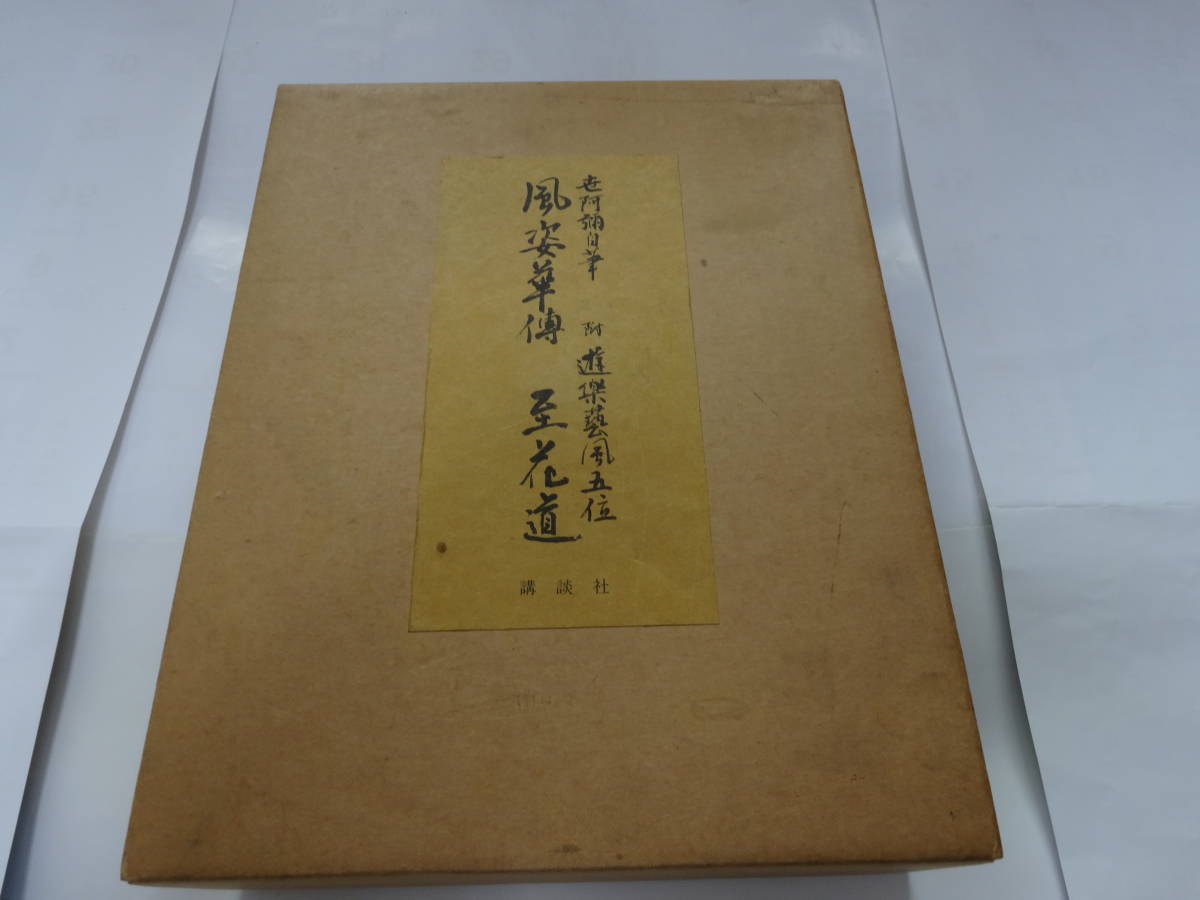 世阿彌自筆 附 遊樂藝風五位
風姿華傳 至花道
講談社